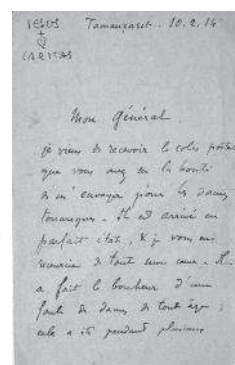 JESUS
CARITAS
Tamanrasset. 10.2.14
Mon Général.
je viens de recevoir le colis postal
que vous avez eu la bonté
de m'envoyer pour les dames
touaregues. Il est arrivé en
parfait état, & je vous en
remercie de tout mon cœur. Il
a fait le bonheur d'une
foule de dames de tout âge ;
cela a été pendant plusieurs